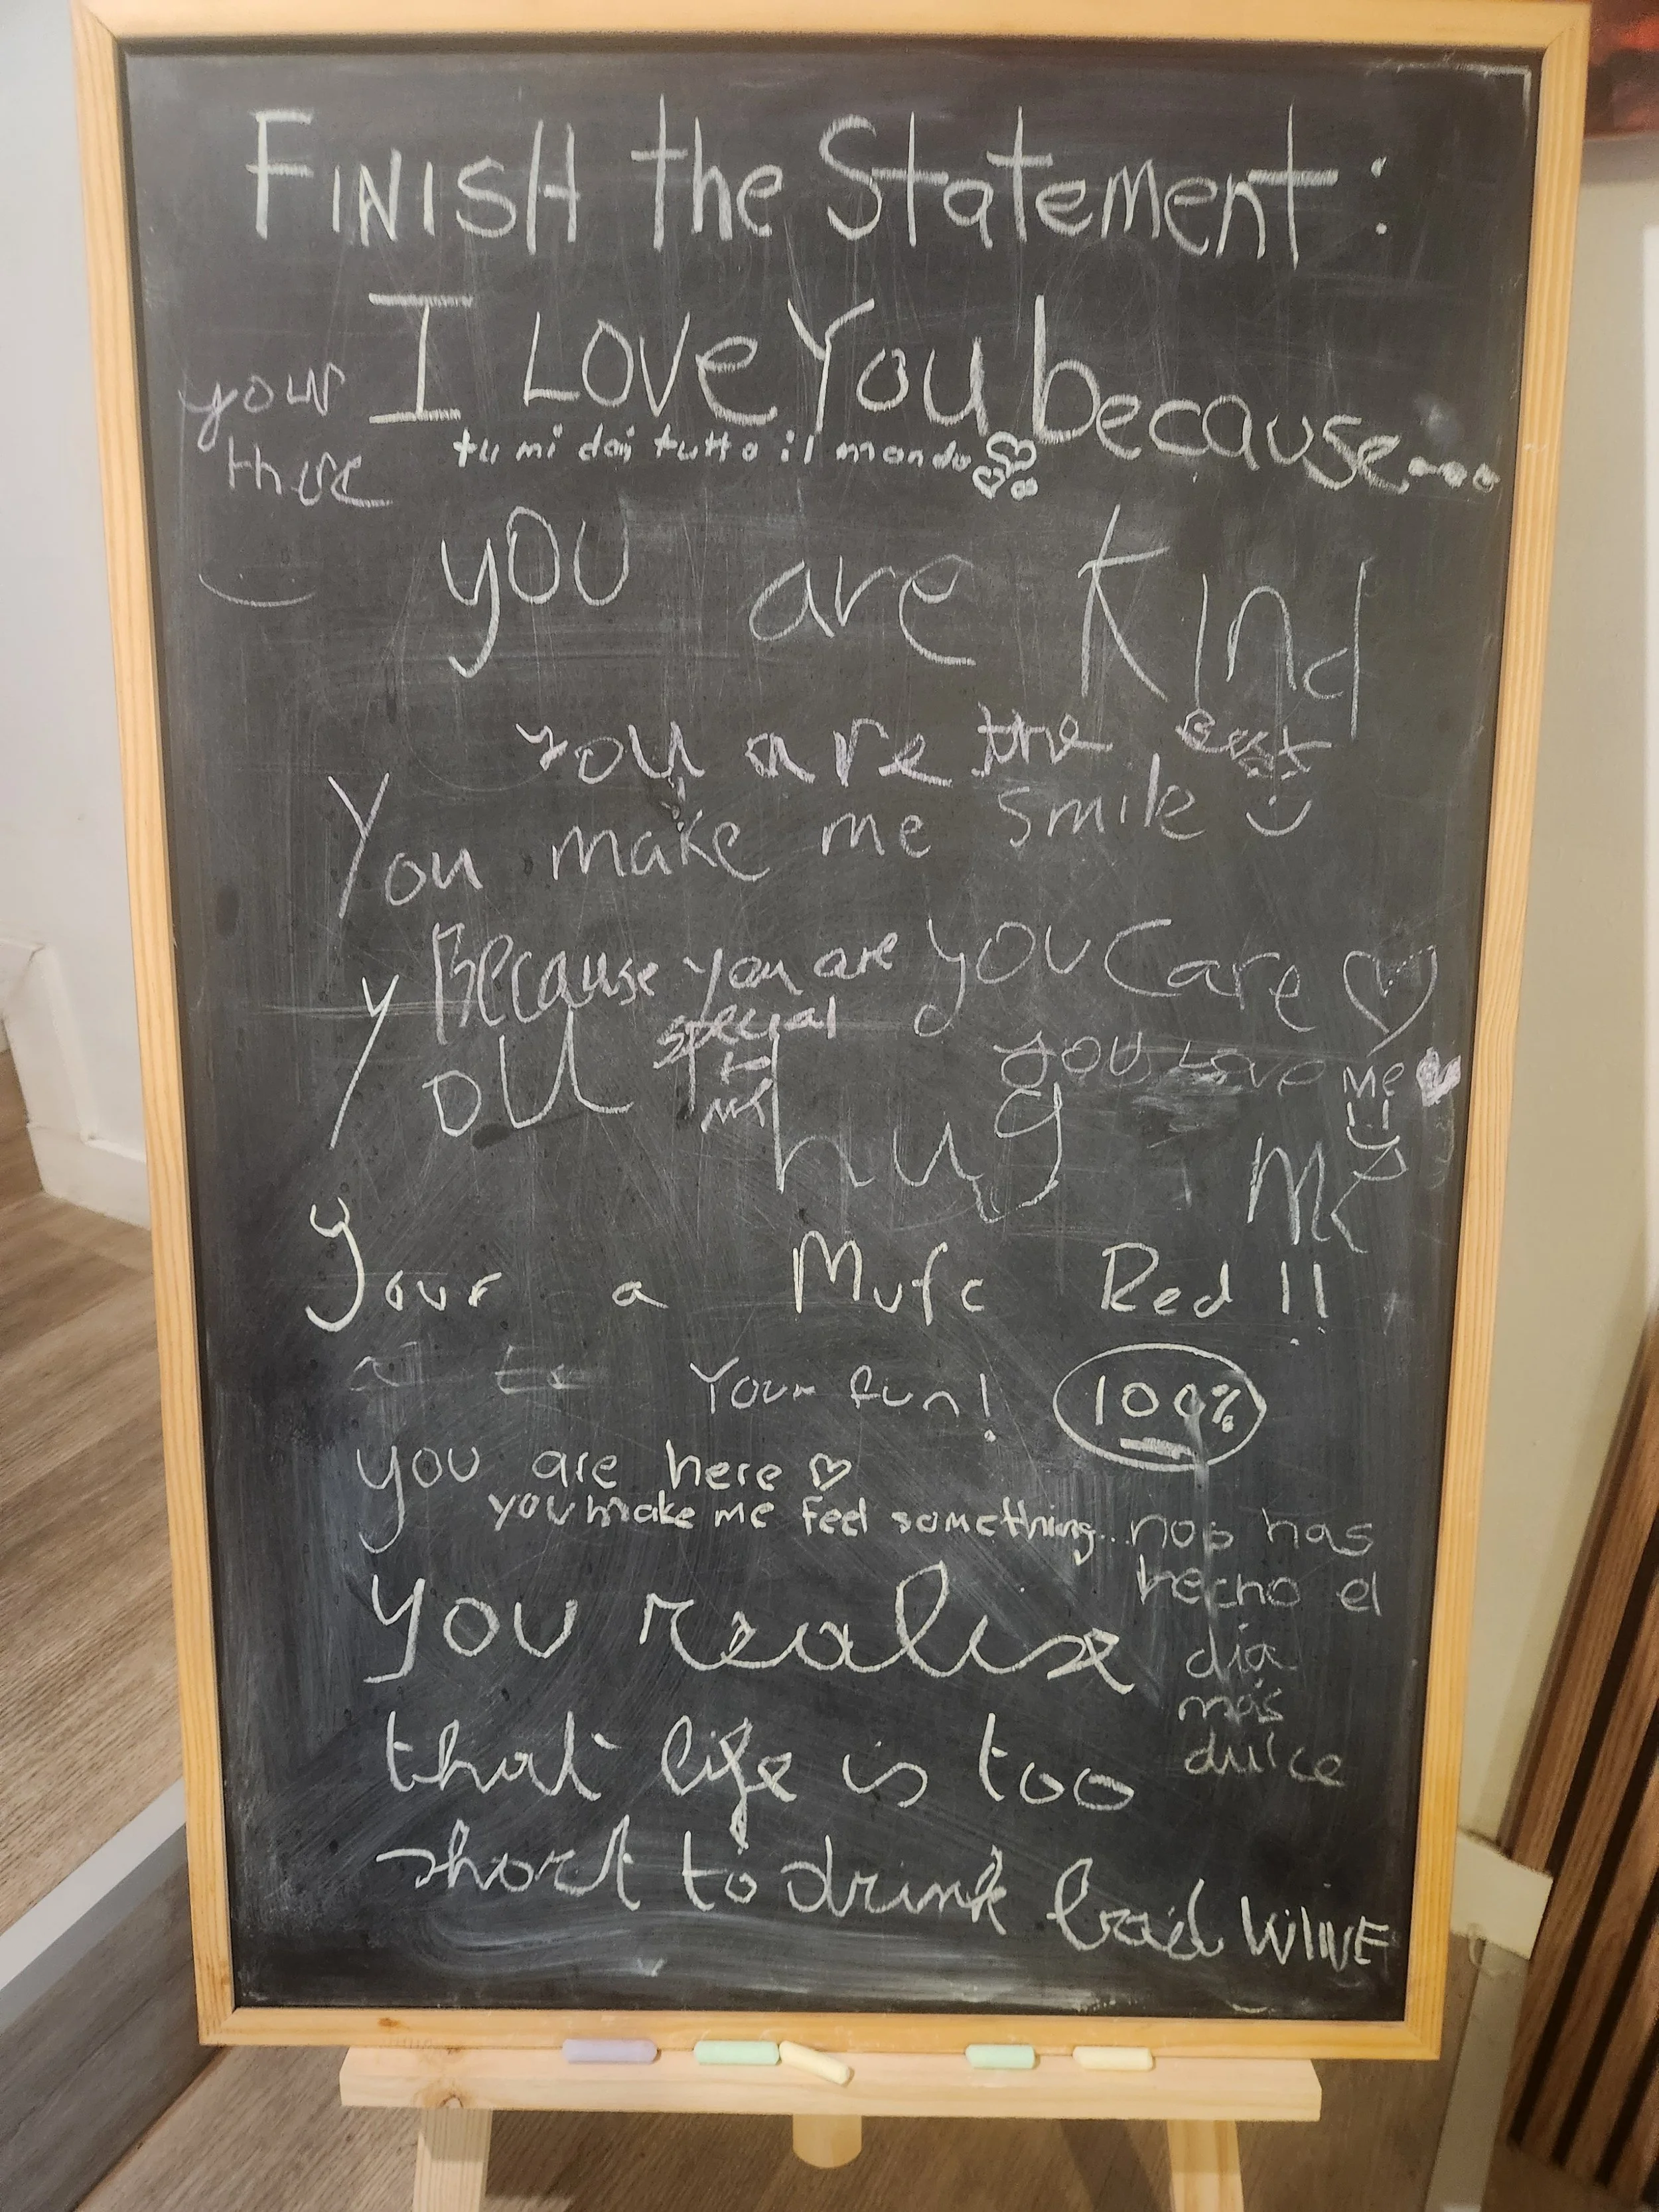 FINISH the Statement:
I Love You because....
your
there
tu mi dai tutto il mondo
you are kind
You are the Best
You make me smile
Because you are
special
to
me
you care
You hug me
you love me
Your a Mufc Red!!
Your fun!
100%
you are here
you make me feel something...
nos has
hecho el
día
más
dulce
you realise
that life is too
short to drink bad WINE